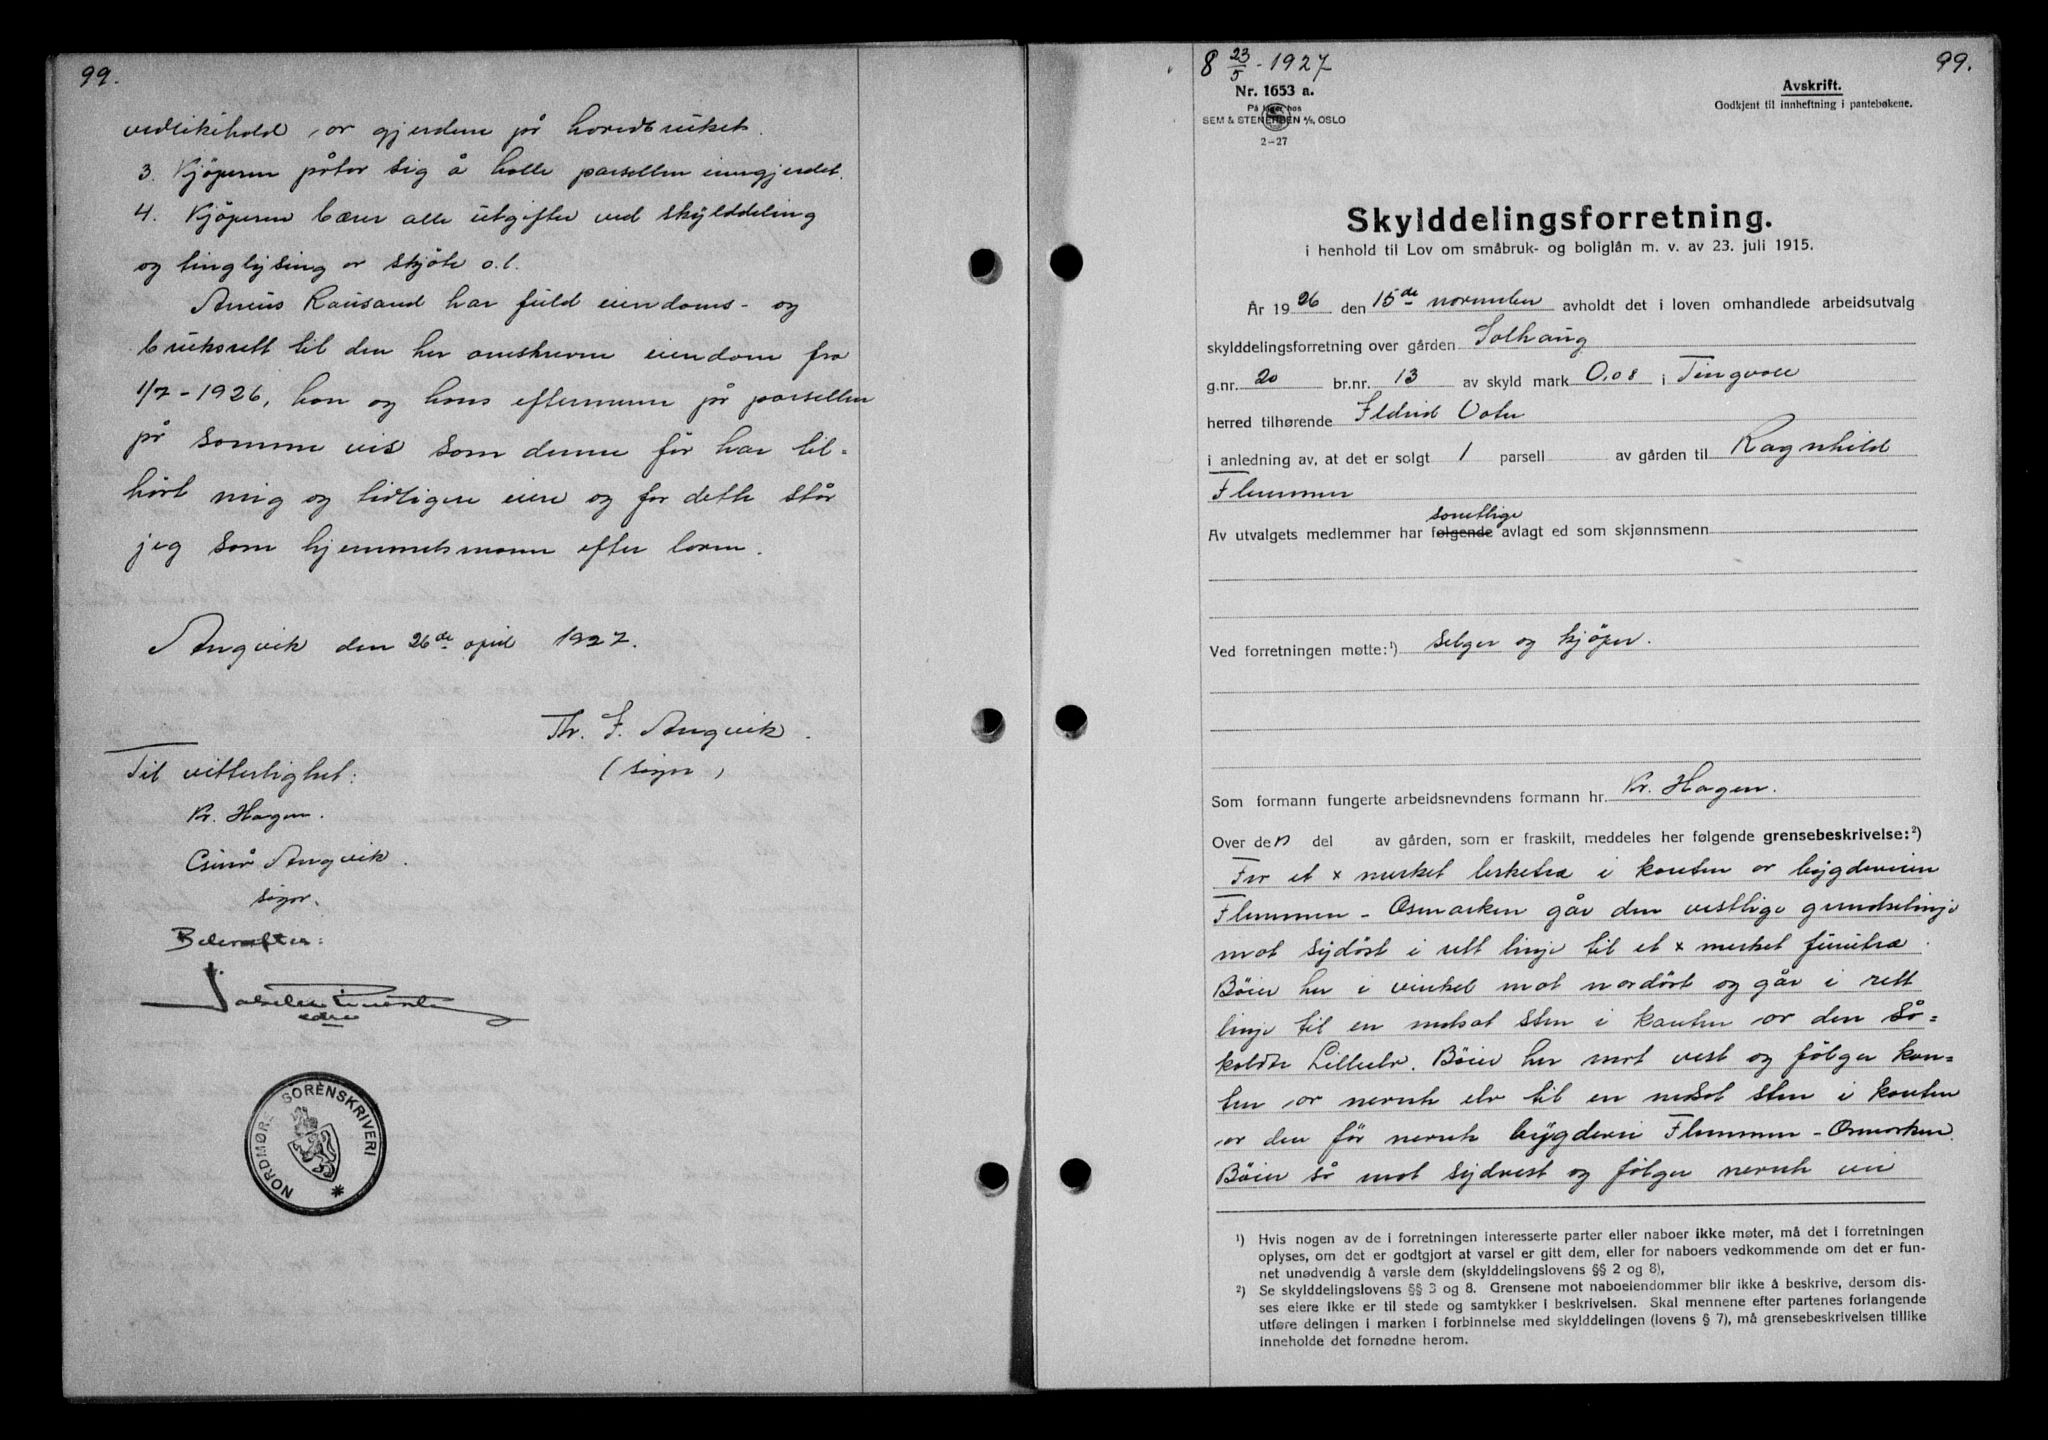 99.
vedlikehold av gjerdene på hovedbruket.
3. Kjøperen påtar sig å holde parsellen inngjerdet.
4. Kjøperen bærer alle utgifter ved skylddeling
og tinglysing av skjøte o.l.
Anéus Rausand har fuld eiendoms- og
bruksrett til den her omskrevne eiendom fra
1/7 - 1926, han og hans eftermenn på parsellen
på samme vis som denne før har til-
hørt mig og tidligere eiere og for dette står
jeg som hjemmelsmann efter loven.
Angvik den 26de april 1927.
Th. F. Angvik.
(sign)
Til vitterlighet:
Kr. Hagen.
Einar Angvik.
sign.
Bekreftes:
NORDMØRE SORENSKRIVERI
8 23/5 - 1927
99.
Nr. 1653 a.
På lager hos
SEM & STENERSEN A/S, OSLO
2-27
Avskrift.
Godkjent til innheftning i pantebøkene.
Skylddelingsforretning.
i henhold til Lov om småbruk- og boliglån m. v. av 23. juli 1915.
År 1926 den 15de november avholdt det i loven omhandlede arbeidsutvalg
skylddelingsforretning over gården Solhaug
g.nr. 20 br.nr. 13 av skyld mark 0,08 i Tingvoll
herred tilhørende Eldrid
i anledning av, at det er solgt 1 parsell av gården til Ragnhild
Flemmen
samtlige
Av utvalgets medlemmer har følgende avlagt ed som skjønnsmenn
Ved forretningen møtte:¹) selger og kjøper.
Som formann fungerte arbeidsnevndens formann hr. Kr. Hagen.
Over den del av gården, som er fraskilt, meddeles her følgende grensebeskrivelse:²)
Fra et x merket bjerketræ i kanten av bygdeveien
Flemmen - Osmarken går den vestlige grundselinje
mot sydøst i rett linje til et x merket furutræ.
Bøier her i vinkel mot nordøst og går i rett
linje til en nedsat sten i kanten av den så-
kaldte Lilleelv. Bøier her mot vest og følger kan-
ten av nevnte elv til en nedsat sten i kanten
av den før nevnte bygdevei Flemmen - Osmarken.
Bøier så mot sydvest og følger nevnte vei
¹) Hvis nogen av de i forretningen interesserte parter eller naboer ikke møter, må det i forretningen
oplyses, om det er godtgjort at varsel er gitt dem, eller for naboers vedkommende om det er fun-
net unødvendig å varsle dem (skylddelingslovens §§ 2 og 8),
²) Se skylddelingslovens §§ 3 og 8. Grensene mot naboeiendommer blir ikke å beskrive, dersom dis-
ses eiere ikke er til stede og samtykker i beskrivelsen. Skal mennene efter partenes forlangende
utføre delingen i marken i forbinnelse med skylddelingen (lovens § 7), må grensebeskrivelsen tillike
inneholde det fornødne herom.